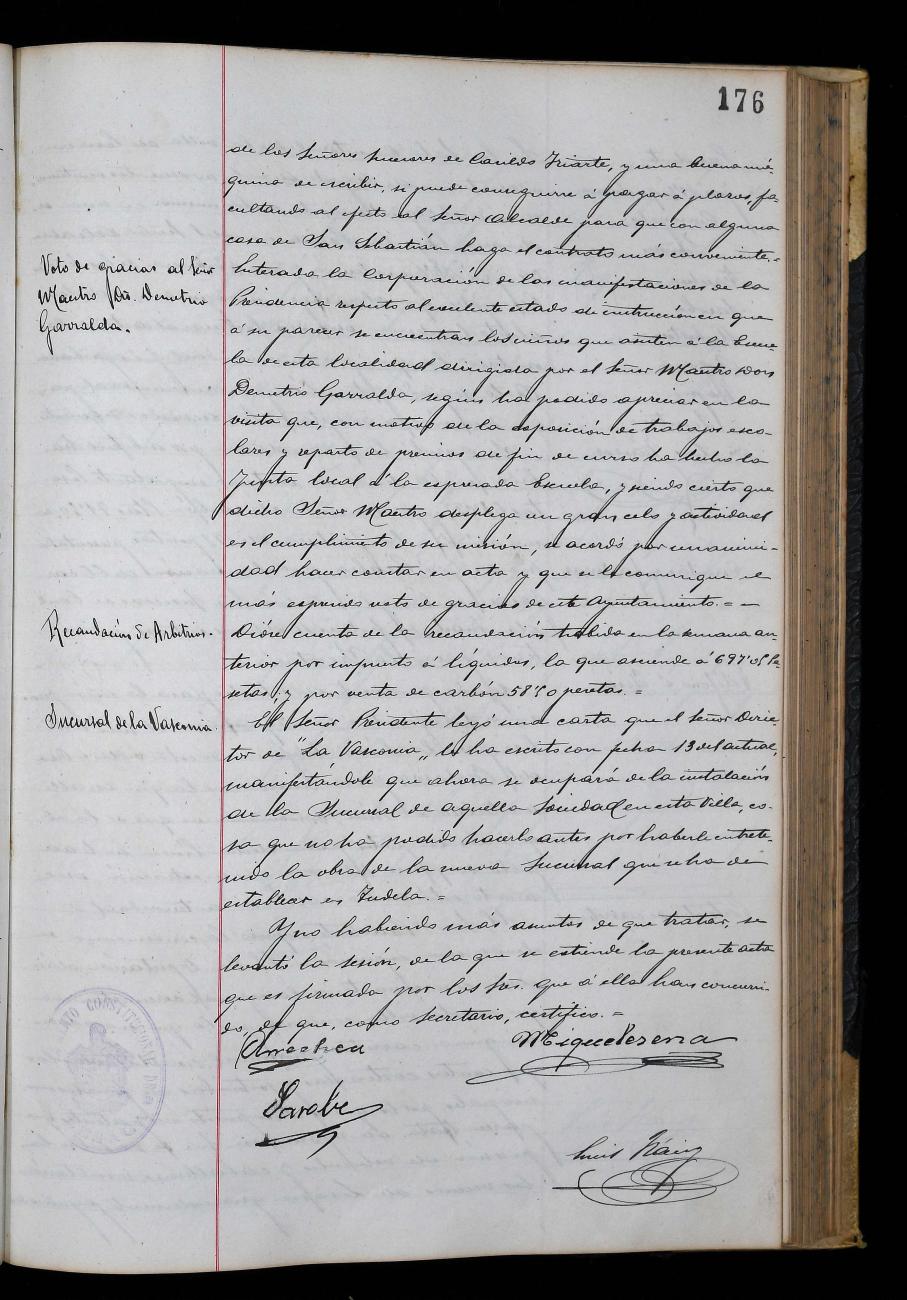 176
de los Señores Sucesores de Casildo Iriarte, y una buena má-
quina de escribir, si puede conseguirse á pagar á plazos, fa-
cultando al efecto al Señor Alcalde para que con alguna
casa de San Sebastián haga el contrato más conveniente.=
Voto de gracias al Señor
Maestro Dn. Demetrio
Garralda.
Enterada la Corporación de las manifestaciones de la
Presidencia respecto al excelente estado de instrucción en que
á su parecer se encuentran los niños que asisten á la Escue-
la de esta localidad dirigida por el Señor Maestro Don
Demetrio Garralda, según ha podido apreciar en la
visita que, con motivo de la exposición de trabajos esco-
lares y reparto de premios de fin de curso ha hecho la
Junta local á la expresada Escuela, y siendo cierto que
dicho Señor Maestro desplega un gran celo y actividad
en el cumplimiento de su misión, se acordó por unanimi-
dad hacer constar en acta y que se le comunique el
más expresivo voto de gracias de este Ayuntamiento.=
Recaudación de Arbitrios.
Dióse cuenta de la recaudación habida en la semana an-
terior por impuesto á líquidos, la que asciende á 697'05 Pe-
setas, y por venta de carbón 58'50 pesetas.=
Sucursal de la Vasconia.
El Señor Presidente leyó una carta que el Señor Direc-
tor de "La Vasconia" le ha escrito con fecha 13 del actual,
manifestándole que ahora se ocupará de la instalación
de la Sucursal de aquella Sociedad en esta Villa, co-
sa que no ha podido hacerlo antes por haberle entrete-
nido la obra de la nueva Sucursal que se ha de
establecer en Tudela.=
Y no habiendo más asuntos de que tratar, se
levantó la sesión, de la que se extiende la presente acta
que es firmada por los Sres. que á ella han concurri-
do, de que, como Secretario, certifico.=
Arrechea
Miguel Perena
Sarobe
Luis
CONSTITUCIONAL